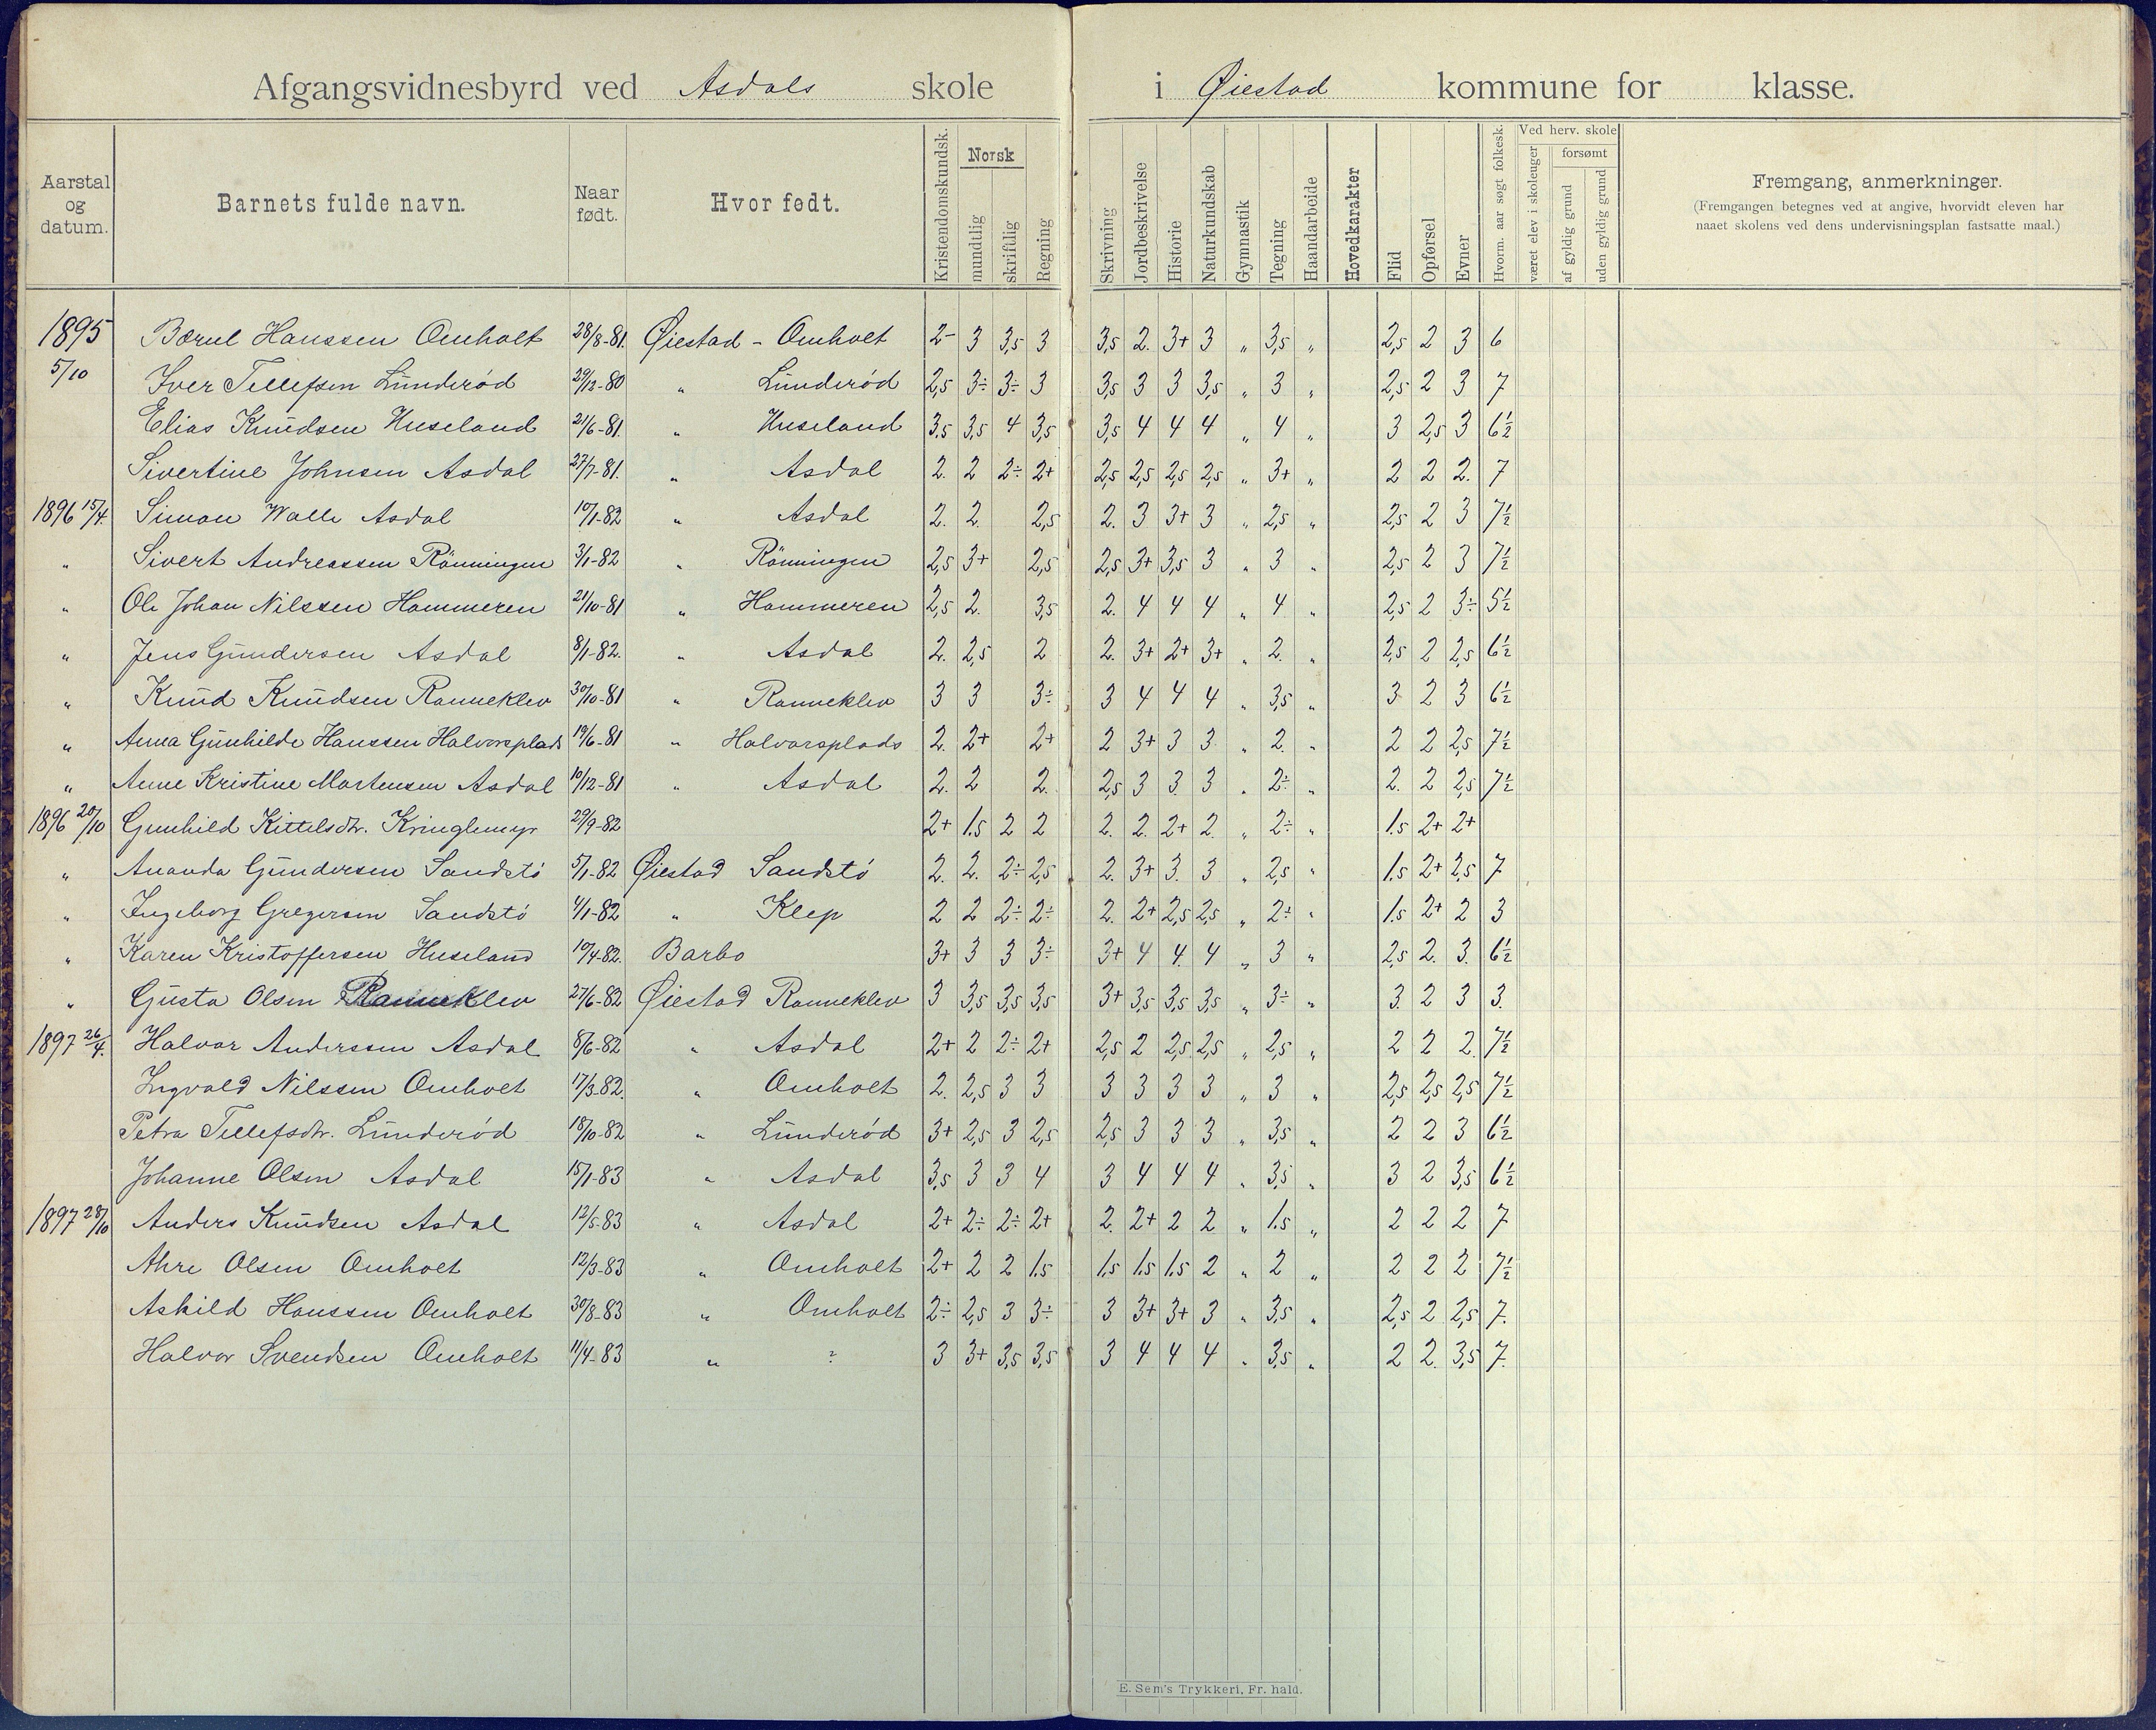 Afgangsvidnesbyrd ved Asdals skole i Øiestad kommune for klasse.
Aarstal og datum. Barnets fulde navn. Naar født. Hvor født. Kristendomskundsk. Norsk mundtlig skriftlig Regning Skrivning Jordbeskrivelse Historie Naturkundskab Gymnastik Tegning Haandarbeide Hovedkarakter Flid Opførsel Evner Hvorm. aar søgt folkesk. Ved herv. skole været elev i skoleuger forsømt af gyldig grund uden gyldig grund Fremgang, anmerkninger.
(Fremgangen betegnes ved at angive, hvorvidt eleven har
naaet skolens ved dens undervisningsplan fastsatte maal.)
1895 Børul Hanssen Omholt 28/8-81. Øiestad - Omholt 2- 3 3,5 3 3,5 2. 3+ 3 " 3,5 " 2,5 2 3 6
5/10 Iver Tellefsen Lunderød 29/12-80 " Lunderød 2,5 3÷ 3÷ 3 3,5 3 3 3,5 " 3 " 2,5 2 3 7
Elias Knudsen Huseland 21/6-81. " Huseland 3,5 3,5 4 3,5 3,5 4 4 4 " 4 " 3 2,5 3 6½
Sivertine Johnsen Asdal 27/7-81. " Asdal 2. 2 2÷ 2+ 2,5 2,5 2,5 2,5 " 3+ " 2 2 2. 7
1896 15/4. Simon Walle Asdal 10/1-82 " Asdal 2. 2. 2,5 2. 3 3+ 3 " 2,5 " 2,5 2 3 7½
" Sivert Andreassen Rönningen 3/1-82 " Rönningen 2,5 3+ 2,5 2,5 3+ 3,5 3 " 3 " 2,5 2 3 7½
" Ole Johan Nilssen Hammeren 21/10-81 " Hammeren 2,5 2. 3,5 2. 4 4 4 " 4 " 2,5 2 3÷ 5½
" Jens Gundersen Asdal 8/1-82. " Asdal 2. 2,5 2 2. 3+ 2+ 3+ " 2. " 2,5 2 2,5 6½
" Knud Knudsen Ranneklev 30/10-81 " Ranneklev 3 3 3÷ 3 4 4 4 " 3,5 " 3 2 3 6½
" Anna Gunhilde Hanssen Halvorsplads 19/6-81 " Halvorsplads 2. 2+ 2+ 2 3+ 3 3 " 2. " 2 2 2,5 7½
" Anne Kristine Mortensen Asdal 10/12-81 " Asdal 2. 2 2. 2,5 3 3. 3 " 2÷ " 2. 2 2,5 7½
1896 20/10 Gunhild Kittelsdtr. Kringlemyr 29/9-82 2+ 1.5 2 2 2. 2. 2+ 2. " 2÷ " 1.5 2+ 2+
" Ananda Gundersen Sandstö 5/1-82 Øiestad Sandstö 2. 2. 2÷ 2,5 2. 3+ 3. 3 " 2,5 " 1.5 2+ 2,5 7
" Ingeborg Gregersen Sandstö 4/1-82 " Klep 2 2 2÷ 2÷ 2. 2+ 2,5 2,5 " 2÷ " 1.5 2+ 2 3
" Karen Kristoffersen Huseland 10/4-82. Barbo 3+ 3 3 3÷ 3+ 4 4. 4 " 3 " 2,5 2. 3. 6½
" Gusta Olsen Ranneklev 27/6-82 Øiestad Ranneklev 3 3,5 3,5 3,5 3+ 3,5 3,5 3,5 " 3÷ " 3. 2 3 3.
1897 26/4. Halvor Anderssen Asdal 8/6-82 " Asdal 2+ 2 2÷ 2+ 2,5 2 2,5 2,5 " 2,5 " 2 2 2. 7½
Ingvald Nilssen Omholt 17/3-82. " Omholt 2. 2,5 3 3 3 3 3 3 " 3 " 2,5 2,5 2,5 7½
Petra Tellefsdtr. Lunderød 18/10-82 " Lunderød 3+ 2,5 3 2,5 2,5 3 3 3 " 3,5 " 2 2 3 6½
Johanne Olsen Asdal 15/1-83 " Asdal 3,5 3 3 4 3 4 4 4 " 3,5 " 3 2 3,5 6½
1897 28/10 Anders Knudsen Asdal 12/5-83 " Asdal 2+ 2÷ 2÷ 2+ 2. 2+ 2 2 " 1.5 " 2 2 2 7
Ahre Olsen Omholt 12/3-83 " Omholt 2+ 2 2 1.5 1.5 1.5 1.5 2 " 2 " 2 2 2 7½
Askild Hanssen Omholt 30/8-83 " Omholt 2÷ 2,5 3 3÷ 3 3+ 3+ 3 " 3,5 " 2,5 2 2,5 7.
Halvor Svendsen Omholt 11/4-83 " ? 3 3+ 3,5 3,5 3 4 4 4 " 3,5 " 2 2. 3,5 7.
E. Sem's Trykkeri, Fr. hald.